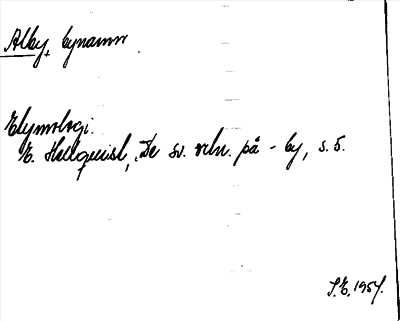 Alby, bynamn
Etymologi.
E. Hellquist, De sv. ortn. på -by, s. 5.
S.E. 1957.